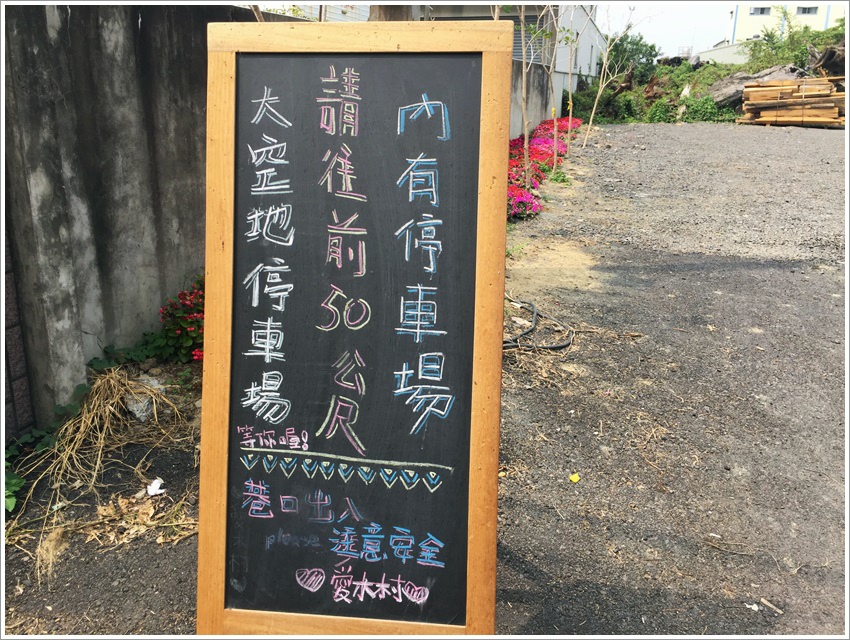 內有停車場
請往前50公尺
大空地停車場
等你喔!
巷口出入
please 注意安全
愛木村